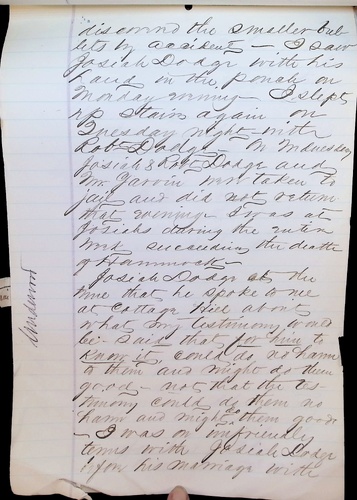 discovered the smaller bul
lets by accident - I saw
Josiah Dodge with his
hand in the pouch on
Monday evening - I slept
up stairs again on
Tuesday night - with
Robt Dodge - On Wednesday
Josiah & Robt Dodge and
Mr. were taken to
jail and did not return
that evening - I was at
Josiahs during the entire
time succeeding the death
of Hammock -
Josiah Dodge at the
time that he spoke to me
at Cottage Hill about
what my testimony would
be - said that for him to
know it, could do no harm
to them and might do them
good - not that the tes-
timony could do them no
harm and might do them good
- I was on unfriendly
terms with Josiah Dodge
upon his marriage with
Underwood